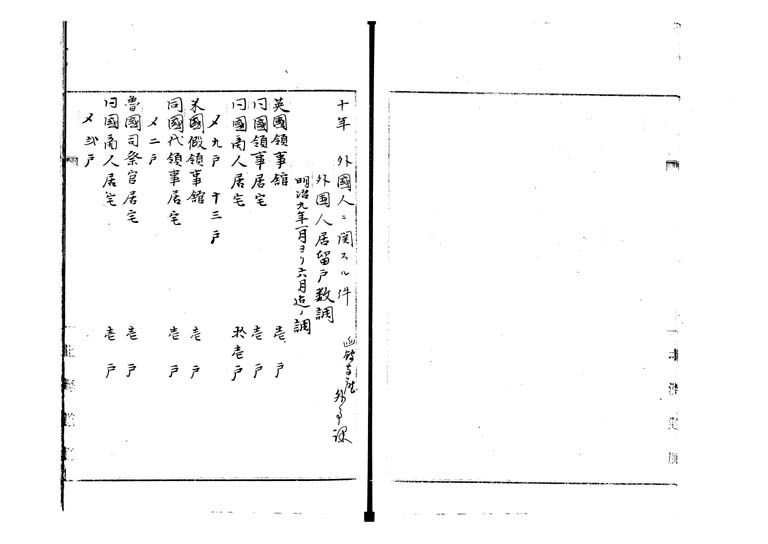 十年 外國人ニ関スル件 函館支庁 外事課
外国人居留戸数調
明治九年一月ヨリ六月迄ノ調
英國領事館 壱戸
同國領事居宅 壱戸
同國商人居宅 壱戸
〆九戸 十三戸
米國假領事舘 壱戸
同國代領事居宅 壱戸
〆二戸
魯國司祭官居宅 壱戸
同國商人居宅 壱戸
〆弐戸